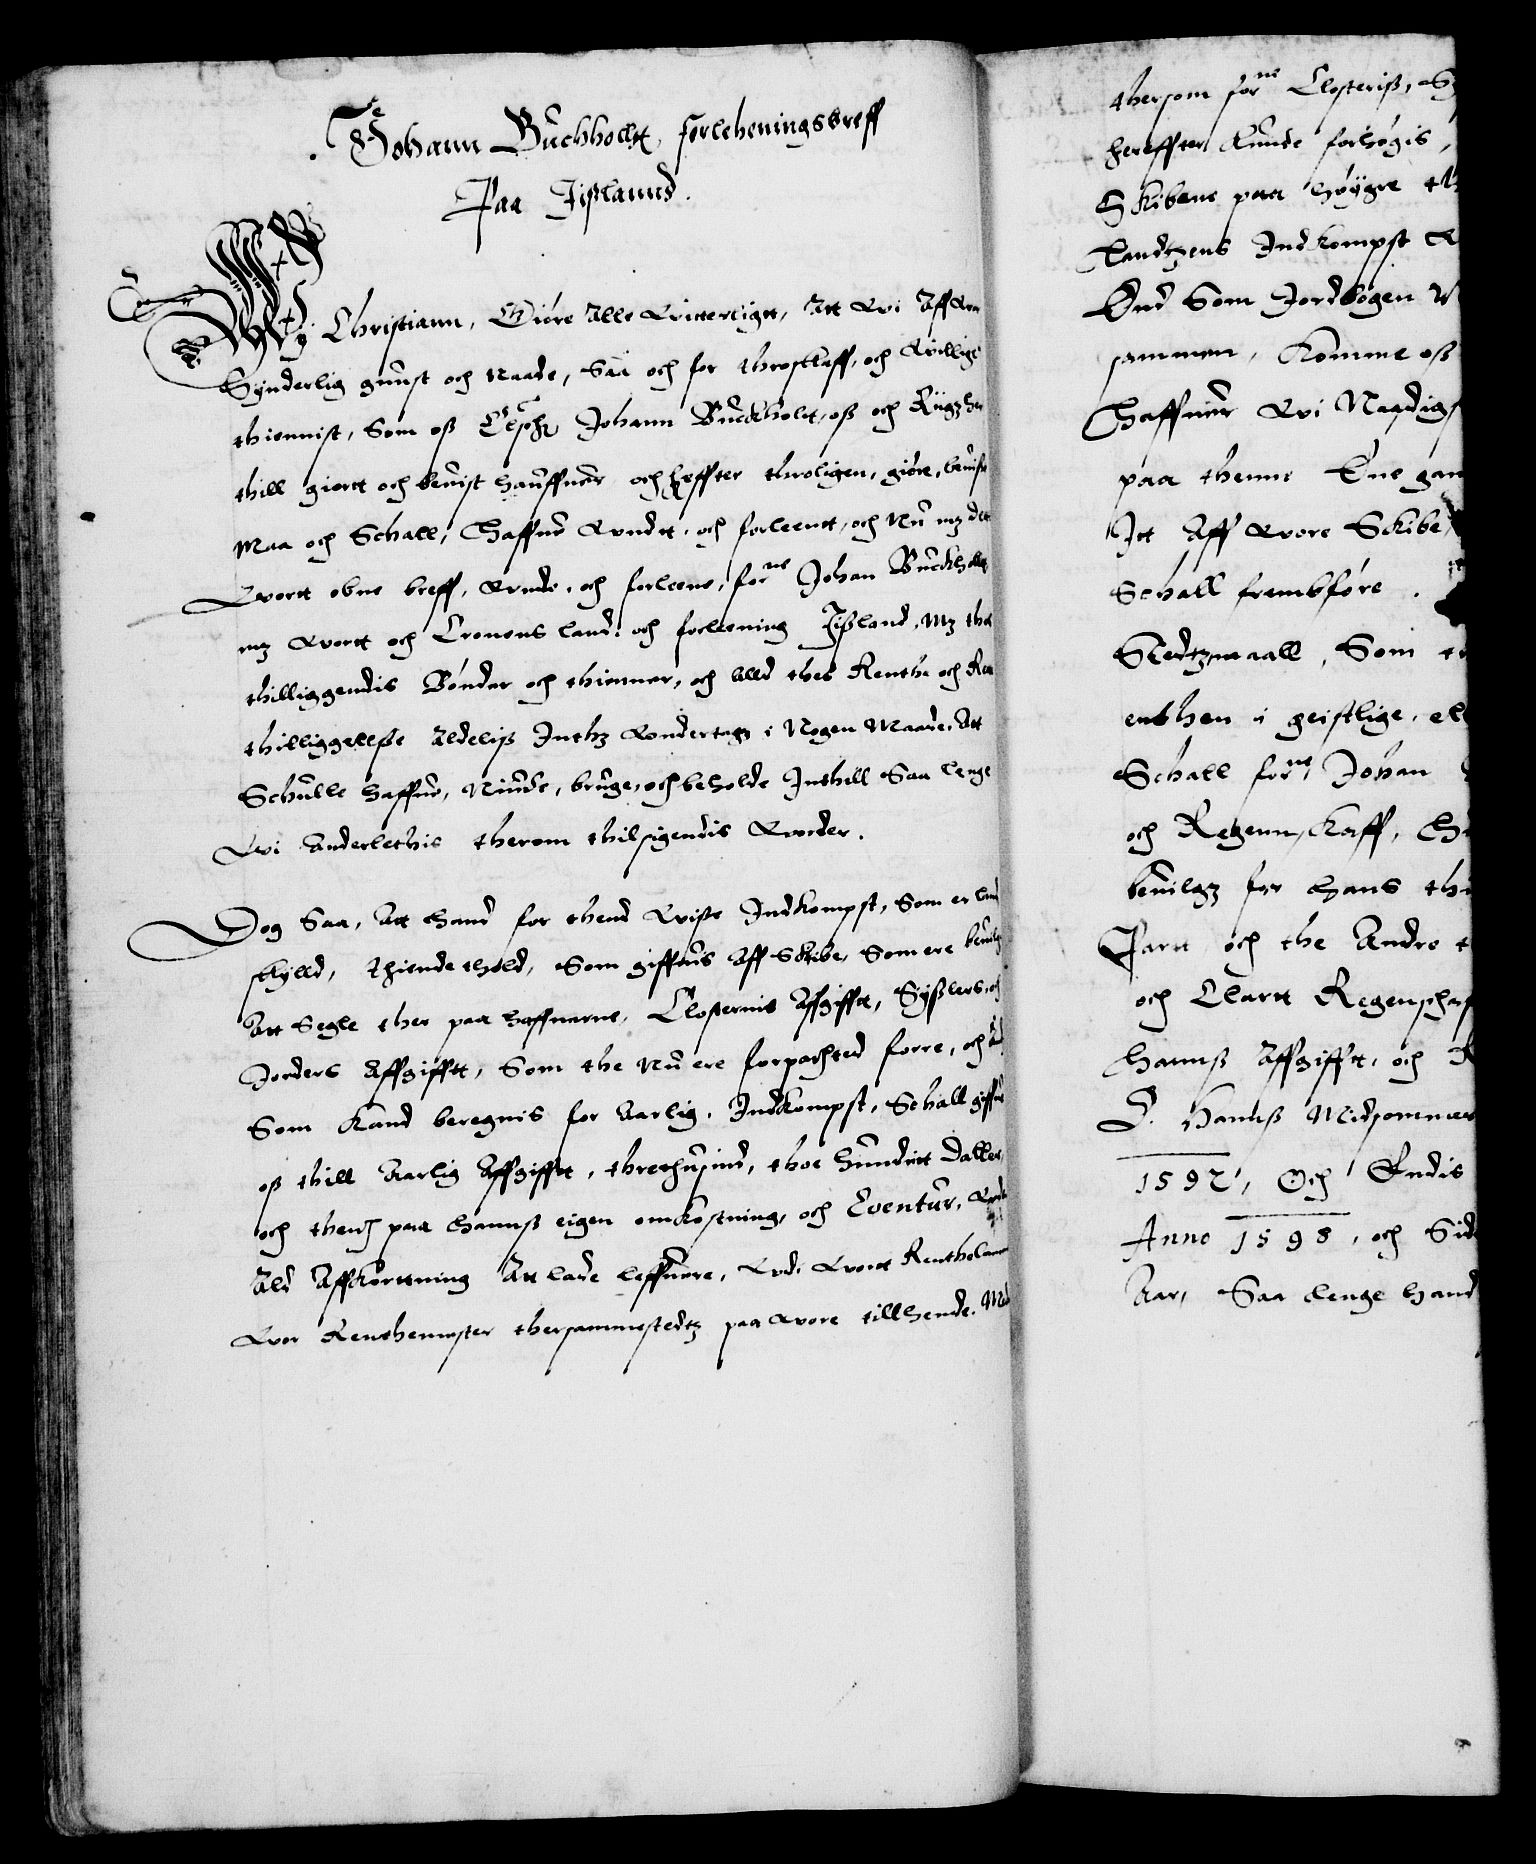 Johann Buchhollt, forleheningsbreff
Paa Jißlannd.
Wij Christiann, Giøre Alle Witterligtt, Att Wi Aff Wor
Synderlig gunst och naade, Saa och for throskaff, och Willige
thiennist, Som oß Elsche Johann Buckholt, oß och Rigz her
thill giortt och beuist haffuer och hereffter throligen, giøre, beuise
Maa och Schall, Haffue Wndtt, och forleentt, och Nu mz dette
Wortt obne breff, Wnde, och forleene, forne Johan Buckhollt
mz Wortt och Cronens land, och forleening Jißland, Mz thes
thilliggendis Bønder och thienner, och Alld thes Renthe och Rett
thilliggellße Aldeliß Inthz Wndertagz i Nogen Maade, Att
Schulle haffue, Niude, bruge, och beholde Inthill Saa lenge
Wi Anderlethis therom thilsigendis Worder.
Dog Saa, Att hand for thend Wisse Indkompst, Som er land
schylld, thiende thold, Som giffuis Aff Skibe, Som ere beuilg
Att Segle ther paa haffnerne, Closternis Affgifftt, Sysslers och
Jorders Affgifftt, Som the Nu ere forpachted forre, och And
Som Kand beregnis for Aarlig, Indkompst, Schall giffue
oß thill Aarlig Affgifftt, threthusind, thoe hundritt daller,
och thend paa hannß eigen omkostning, och Eventur, Wden
Ald Affkorttning Att lade leffuere, Wdi Wortt Renthekammer
Wor Renthemester thersammestedtz paa Wore till hende. Med
thersom forne Closteriß, Sy
hereffter Kunde forhøgis,
Skibene paa høygre th
Landtzens Indkompst
End Som Jordbogen
sammen, Komme oß
Haffuer Wi Naadigst
paa thenne Ene gan
Itt Aff Wore Skibe
Schall frembføre.
Stedtzmaall, Som
enthen i geistlige, ell
Schall forne Johan
och Regennskaff,
beuilgz for hans th
Partt och the Andre
och Clartt Regenschaf
hannß Affgifftt, och
S. Hannß Midsommer
1597, Och Endis
Anno 1598, och Sid
Aar, Saa lenge hand